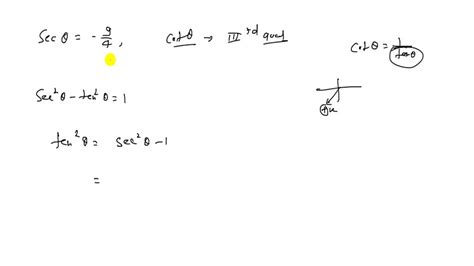 Sec θ = - 9/4 , Cotθ → III rd quad
Cot θ = 1/tanθ
Sec² θ - tan² θ = 1
+ve
tan² θ = Sec² θ - 1
=